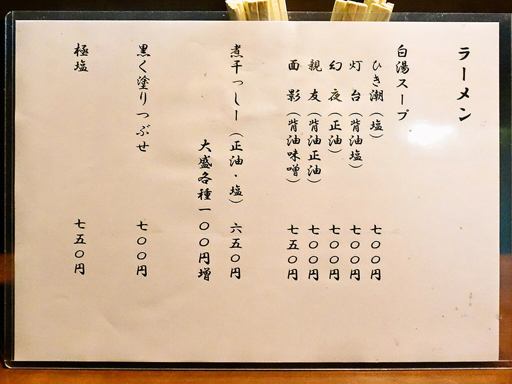 ラーメン
白湯スープ
ひき潮（塩） 七〇〇円
灯台（背油塩） 七〇〇円
幻夜（正油） 七〇〇円
親友（背油正油） 七〇〇円
面影（背油味噌） 七五〇円
大盛各種一〇〇円増
煮干っしー（正油・塩） 六五〇円
黒く塗りつぶせ 七〇〇円
極塩 七五〇円